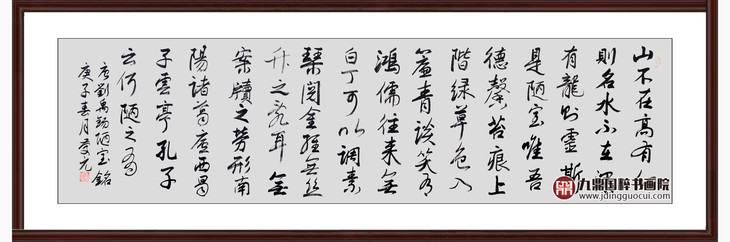 山不在高有仙
則名水不在深
有龍則靈斯
是陋室唯吾
德馨苔痕上
階緑草色入
簾青談笑有
鴻儒往来無
白丁可以調素
琴閲金經無絲
竹之亂耳無
案牘之勞形南
陽諸葛廬西蜀
子雲亭孔子
云何陋之有
唐劉禹錫陋室銘
庚子春月
九鼎国粹书画院
www.jdingguocui.com